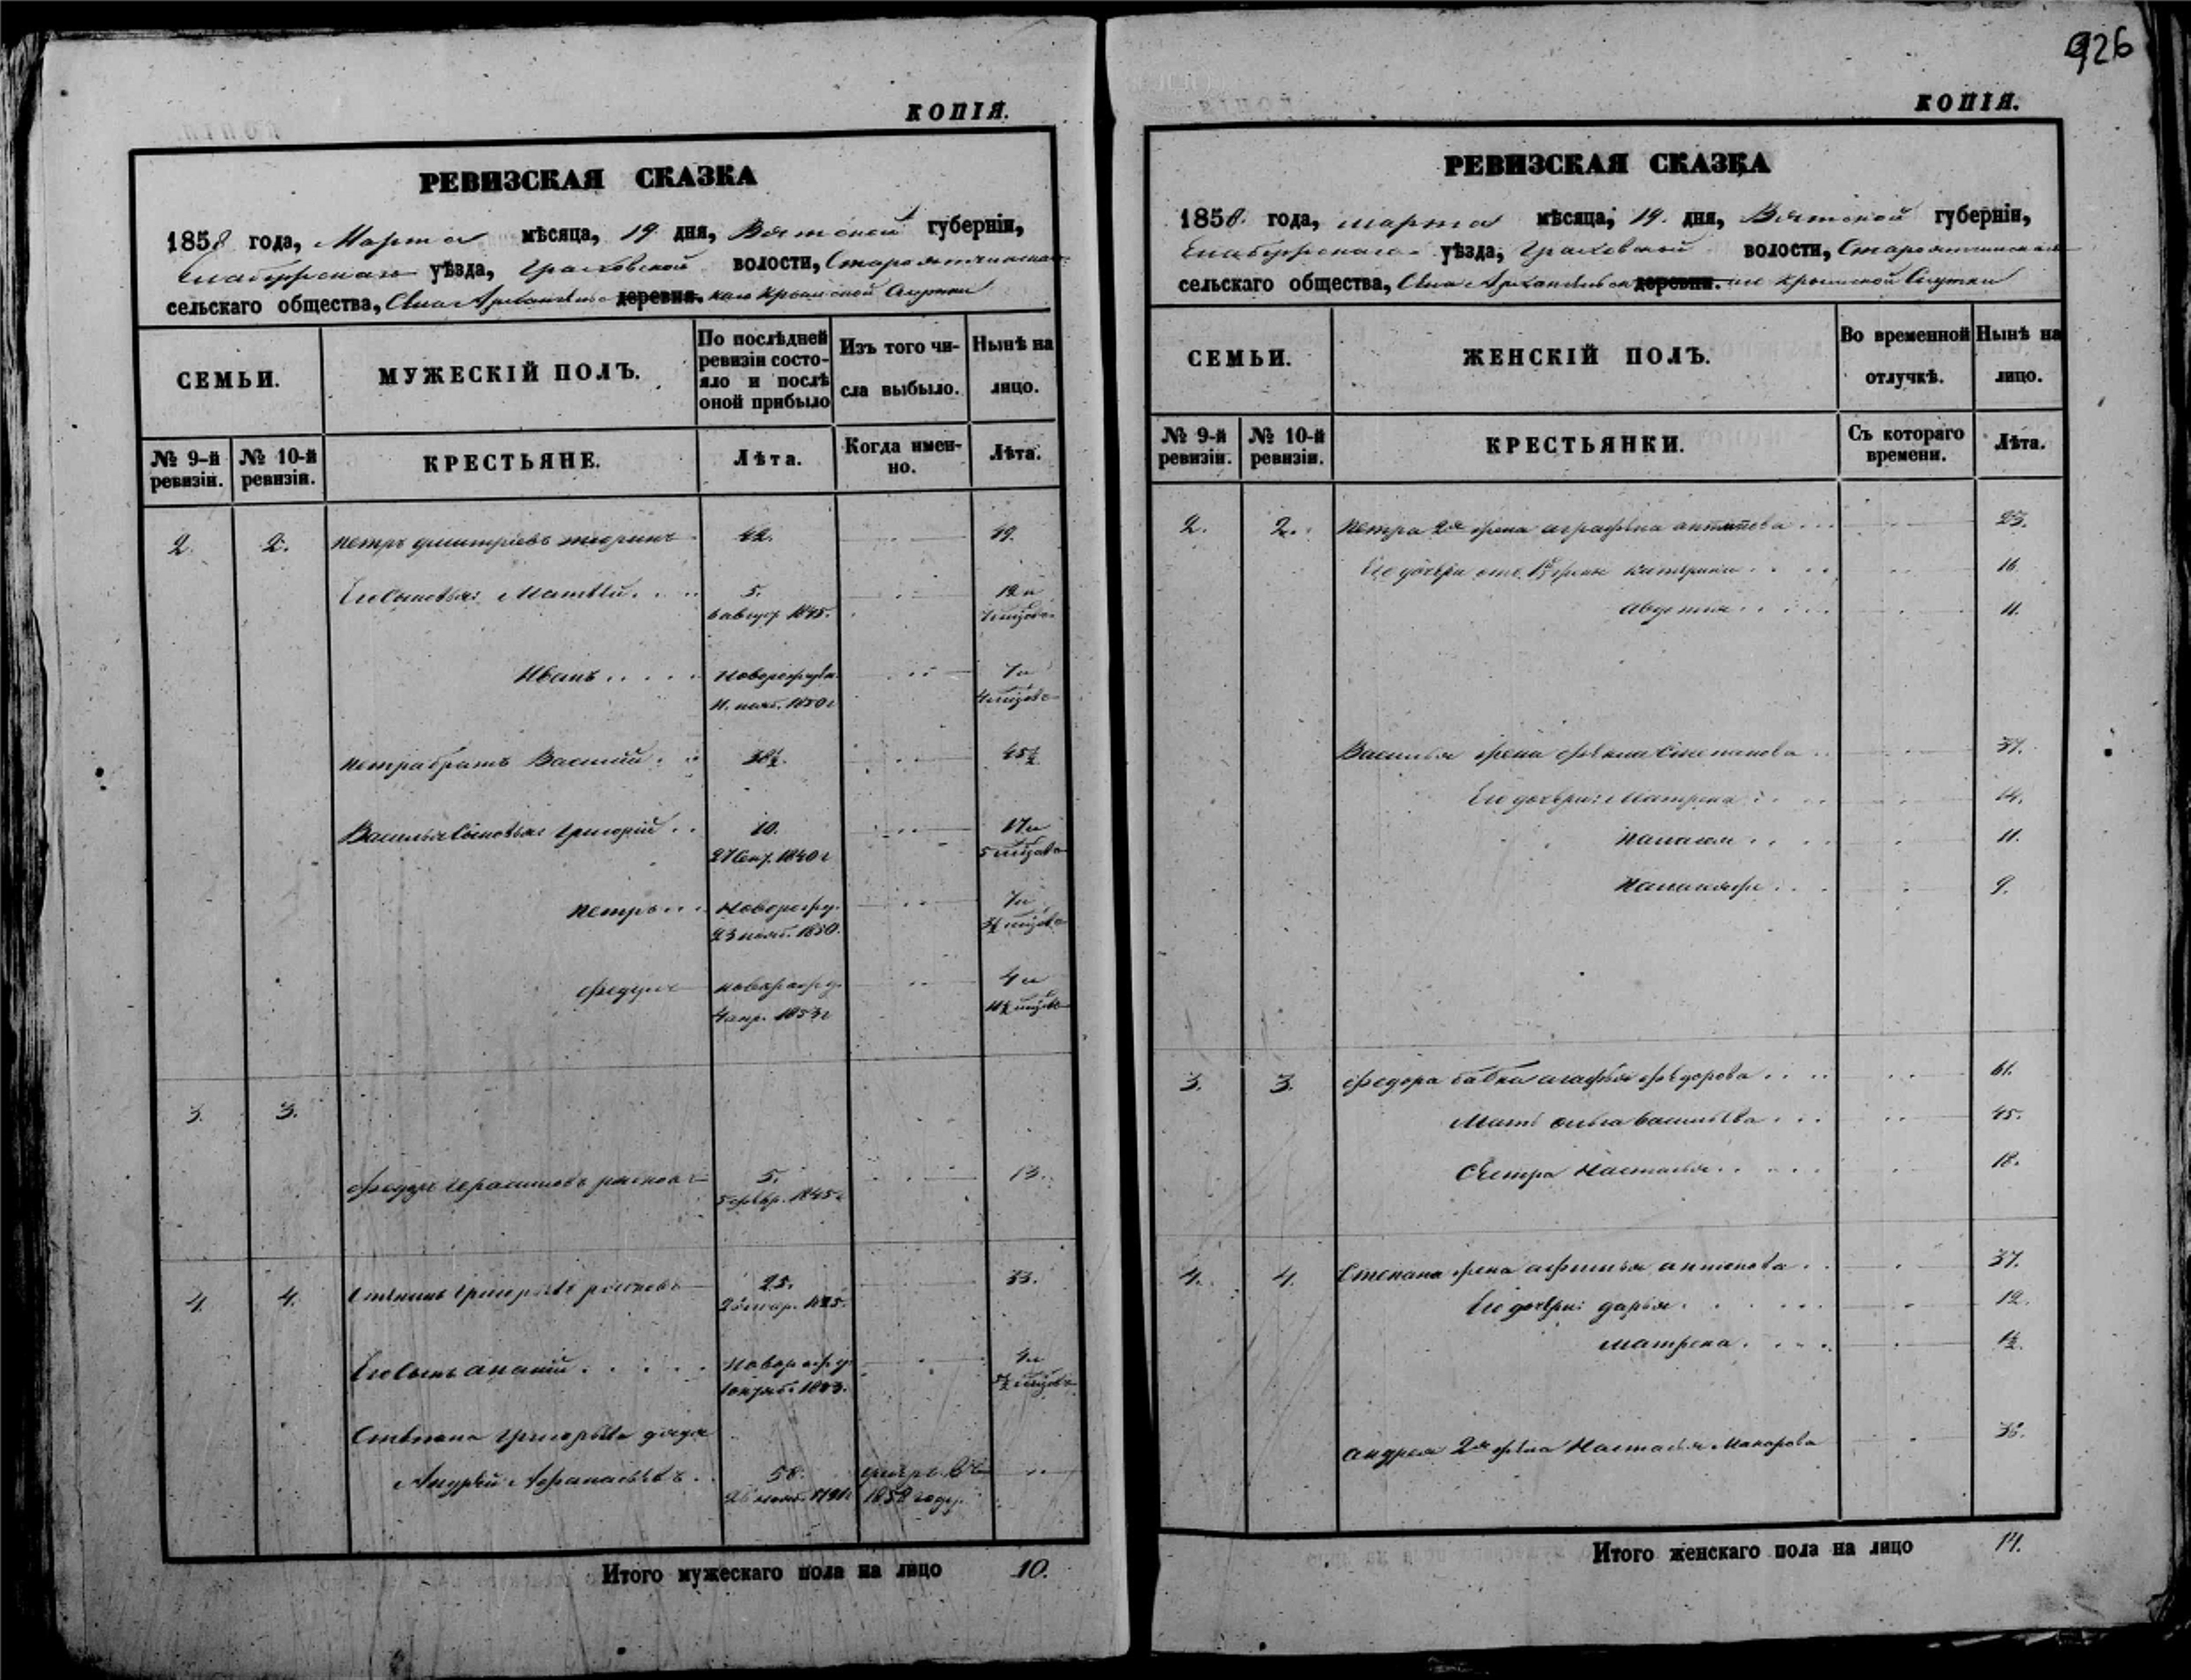 926
КОПІЯ.
РЕВИЗСКАЯ СКАЗКА
1858 года, Марта мѣсяца, 19 дня, Вятской губерніи,
Елабужскаго уѣзда, Граховской волости,
сельскаго общества, Села деревни. Крымской Слудки
СЕМЬИ.
МУЖЕСКІЙ ПОЛЪ.
По послѣдней ревизіи состо-
яло и послѣ
оной прибыло
Изъ того чи-
сла выбыло.
Нынѣ на
лицо.
№ 9-й ревизіи.
№ 10-й ревизіи.
КРЕСТЬЯНЕ.
Лѣта.
Когда имен-
но.
Лѣта.
2. 2. Петръ Дмитріевъ 42. 49.
Его сыновья: Матвѣй 5. 12 и
6 август. 1845. 7 мѣсяцовъ
Иванъ Новорожден. 7 и
11. нояб. 1850 г 4 мѣсяцовъ
Петра братъ Василій 38½. 45½
Василья сыновья: Григорій 10. 17 и
27 сент. 1840 г 5 мѣсяцовъ
Петръ Новорожд. 7 и
23 нояб. 1850. мѣсяцовъ
Федоръ новорожд. 4 и
4 апр. 1853 г 11½ мѣсяцовъ
3. 3.
Федоръ Герасимовъ 5. 13.
5 февр. 1845 г
4. 4. Степанъ Григорьевъ 25. 33.
мар. 1825.
Его сынъ Ананій Новорожд. 4 и
1 октяб. 1853. 5½ мѣсяцовъ
Степана Григорьева дядя
Андрей Афанасьевъ 58. умеръ въ
нояб. 1791 г 1858 году.
Итого мужескаго пола на лицо 10.
КОПІЯ.
РЕВИЗСКАЯ СКАЗКА
1858. года, марта мѣсяца, 19. дня, Вятской губерніи,
Елабужскаго уѣзда, Граховской волости,
сельскаго общества, Села деревни. Крымской Слудки
СЕМЬИ.
ЖЕНСКІЙ ПОЛЪ.
Во временной
отлучкѣ.
Нынѣ на
лицо.
№ 9-й ревизіи.
№ 10-й ревизіи.
КРЕСТЬЯНКИ.
Съ котораго
времени.
Лѣта.
2. 2. Петра 2я жена Аграфена Антипова 23.
Его дочери отъ 1й жены Катерина 16.
Авдотья 11.
Василья жена Фекла Степанова 37.
Его дочери: Матрена 14.
Палагея 11.
9.
3. 3. Федора бабка Агафья Федорова 61.
Мать Ольга Васильева 45.
Сестра Настасья 18.
4. 4. Степана жена Афимья Антонова 37.
Его дочери: Дарья 12.
Матрена 1½.
Андрея 2я жена Настасья Макарова
Итого женскаго пола на лицо 14.